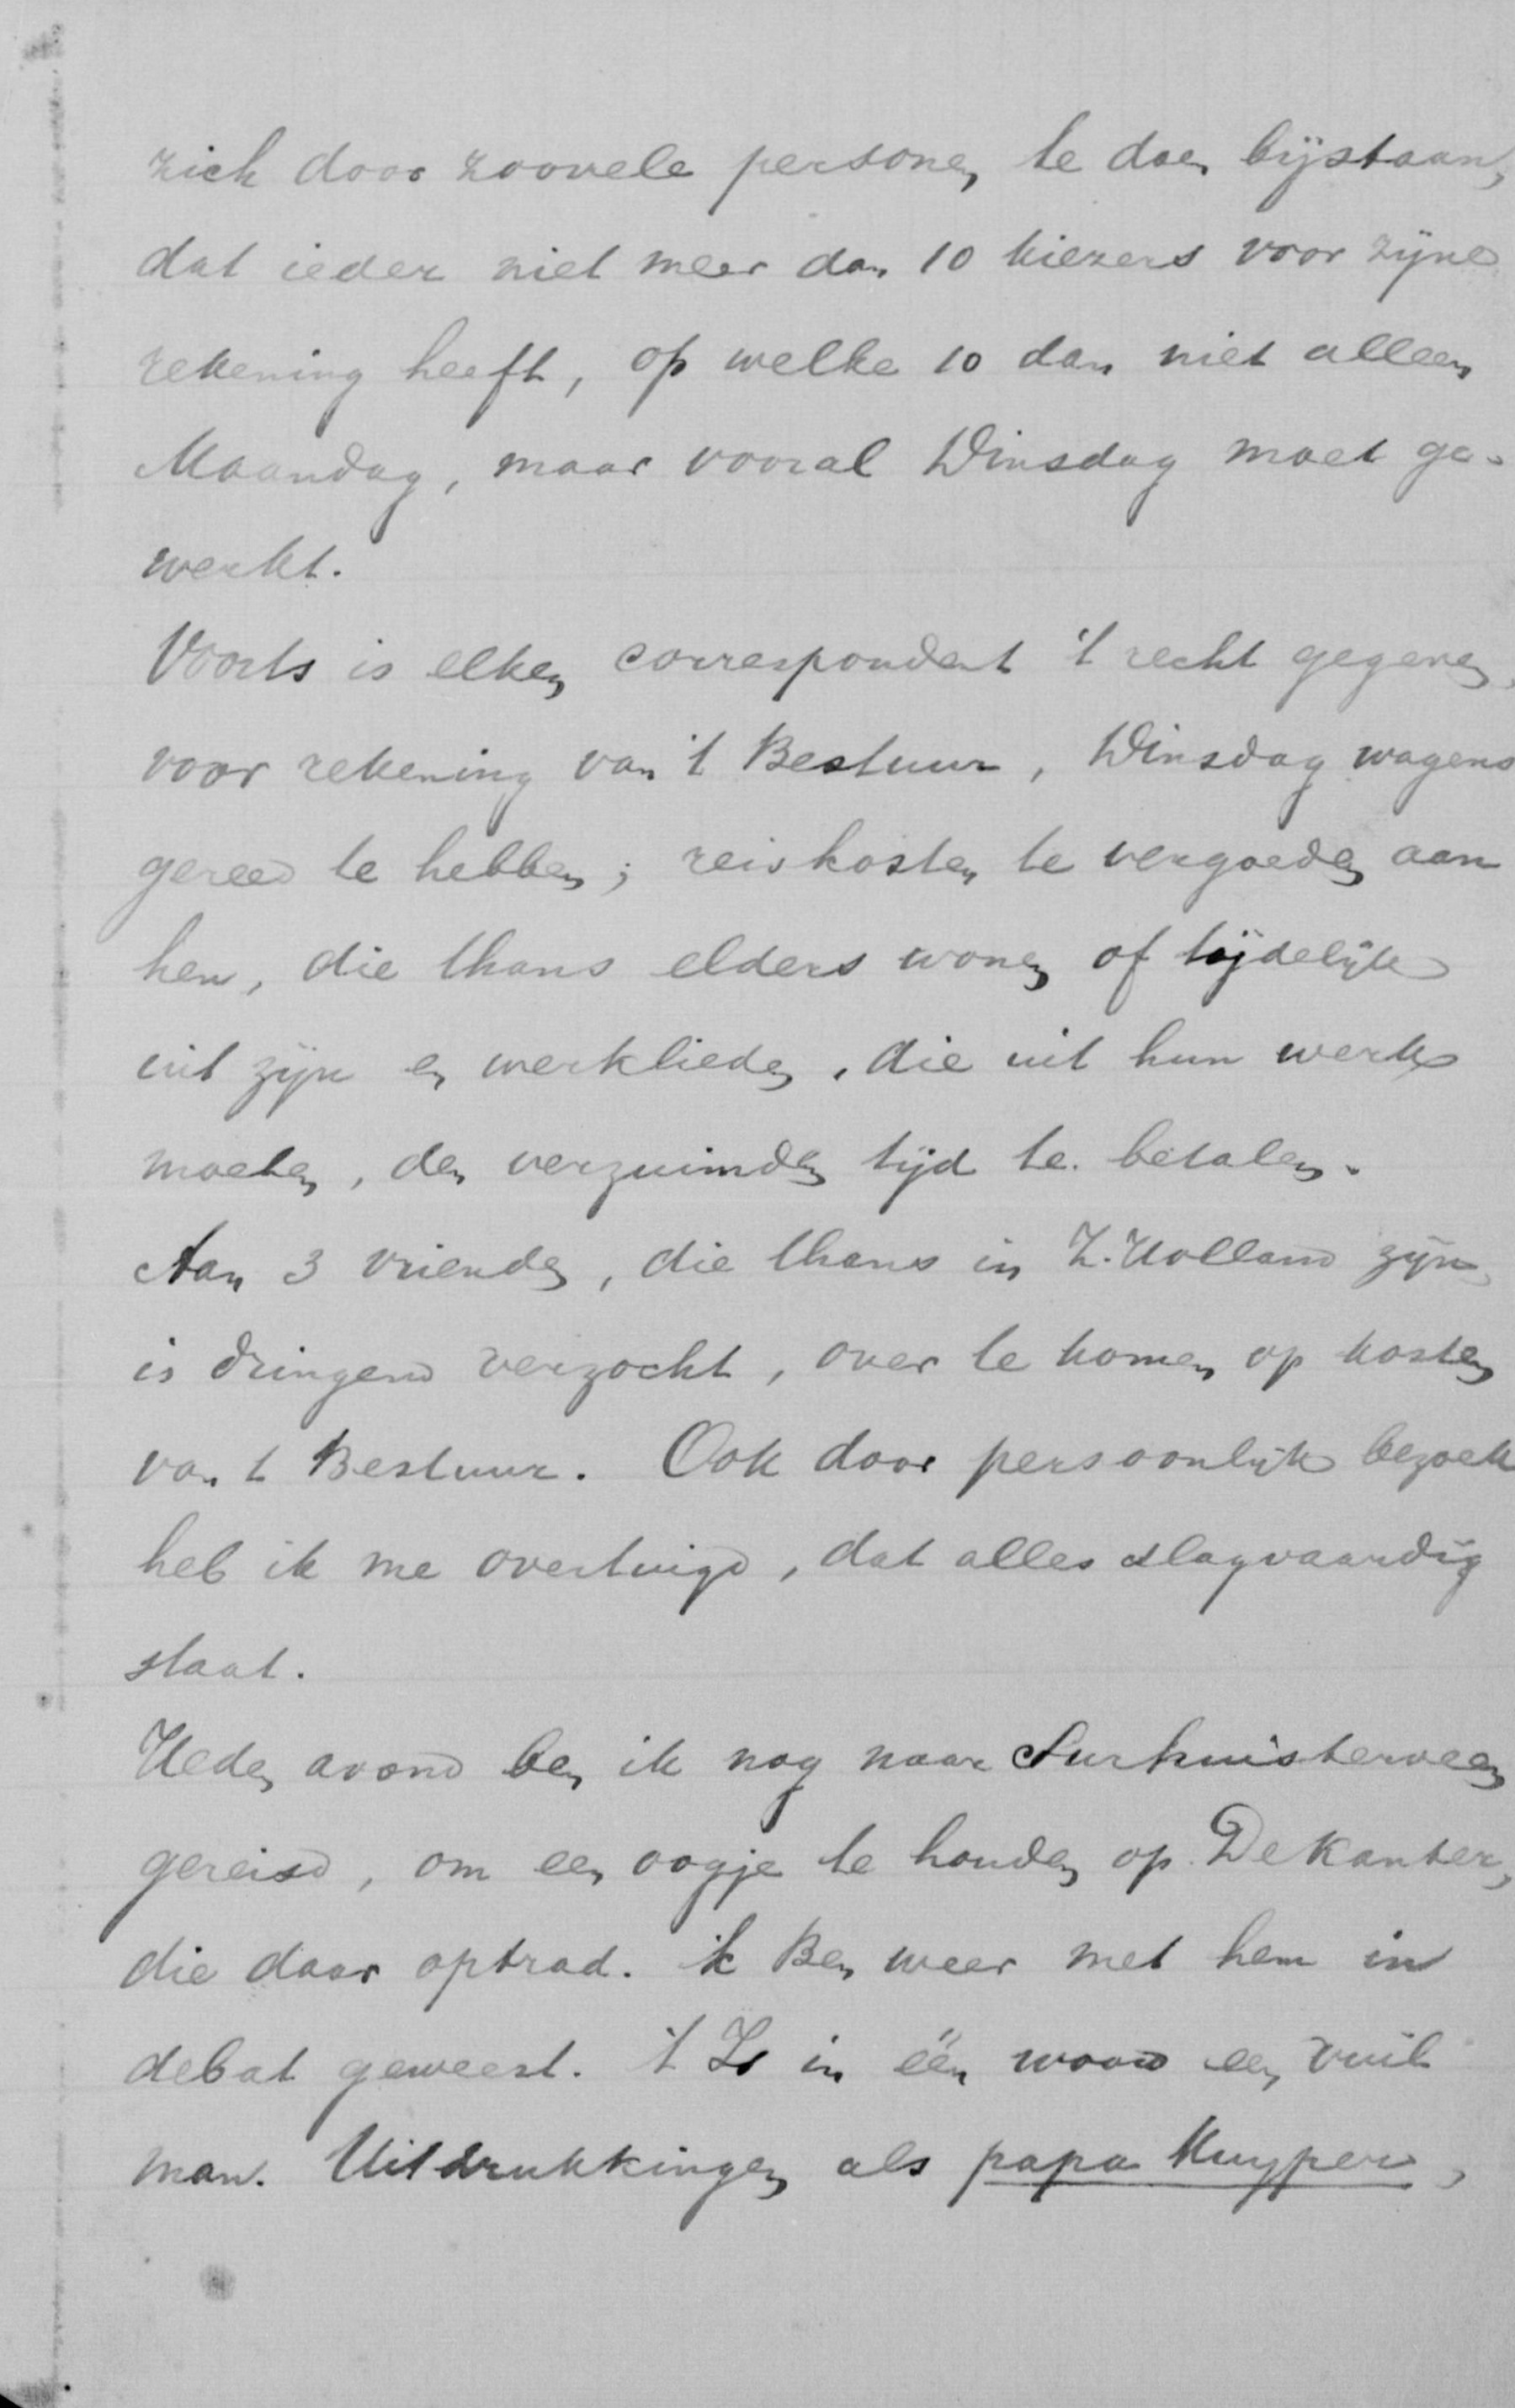 zich door zoovele personen te doen bijstaan,
dat ieder niet meer dan 10 kiezers voor zijne
rekening heeft, op welke 10 dan niet alleen
Maandag, maar vooral Dinsdag moet ge-
werkt.
Voorts is elken correspondent 't recht gegeven,
voor rekening van 't Bestuur, Dinsdag wagens
gereed te hebben; reiskosten te vergoeden aan
hen, die thans elders wonen of tijdelijk
uit zijn en werklieden, die uit hun werk
moeten, den verzuimden tijd te betalen.
Aan 3 vrienden, die thans in Z. Holland zijn,
is dringend verzocht, over te komen op kosten
van t Bestuur. Ook door persoonlijk bezoek
heb ik me overtuigd, dat alles slagvaardig
staat.
Heden avond ben ik nog naar Surhuisterveen
gereisd, om een oogje te houden op De Kanter,
die daar optrad. ik Ben weer met hem in
debat geweest. 't Is in één woord een vuil
man. Uitdrukkingen als papa Kuyper,